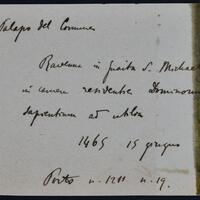 Palazzo del Comune
Ravenna in guaita S. Michael
in camera residentie Dominorum
sapientium ad utilia
1465 15 giugno
Porto n. 1211 n. 19.